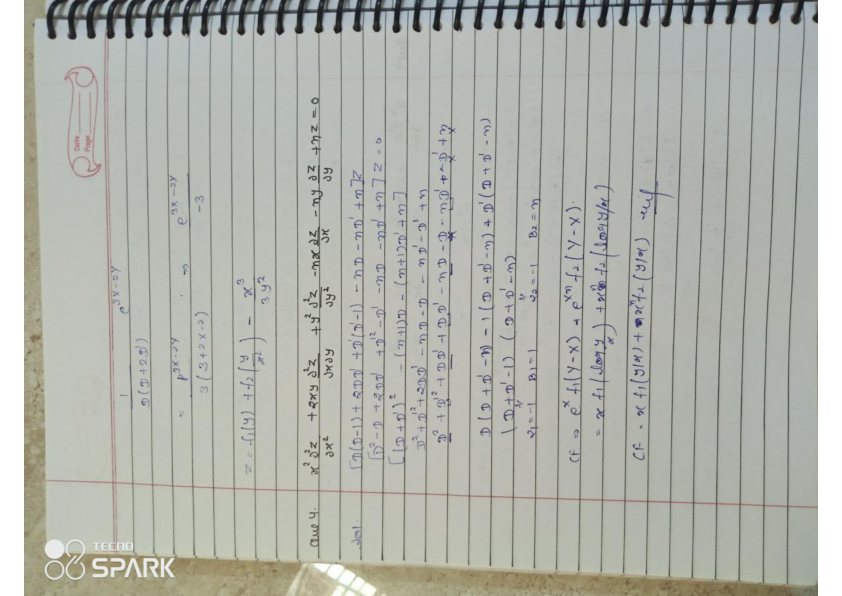 Date
Page
1 e^3x-2y
D(D+2D')
= e^3x-2y . ⇒ e^3x-2y
3(3+2x-2) -3
z = f1(y) + f2(y/x²) - x³/3y²
Que 4. x² ∂²z/∂x² + 2xy ∂²z/∂x∂y + y² ∂²z/∂y² - nx ∂z/∂x - ny ∂z/∂y + nz = 0
Sol. [D(D-1) + 2DD' + D'(D'-1) - nD - nD' + n]z
[D² - D + 2DD' + D'² - D' - nD - nD' + n] z = 0
[(D+D')² - (n+1)D - (n+1)D' + n]
D² + D'² + 2DD' - nD - D - nD' - D' + n
D² + D'² + DD' + DD' - nD - D - nD' - D' + n
D(D+D'-n) - 1(D+D'-n) + D'(D+D'-n)
(D+D'-1) (D+D'-n)
a1 = -1 B1 = 1 a2 = -1 B2 = n
CF ⇒ e^x f1(y-x) + e^xn f2(y-x).
= x f1(log y/x) + x^n f2(log y/x)
CF = x f1(y/x) + x^n f2(y/x)
TECNO
SPARK